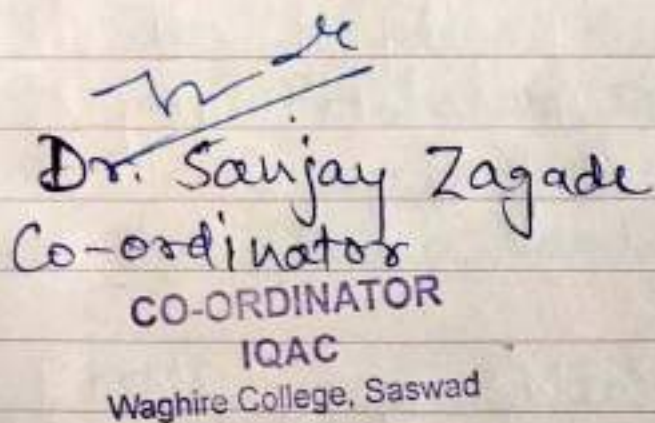 Dr. Sanjay Zagade
Co-ordinator
CO-ORDINATOR
IQAC
Waghire College, Saswad